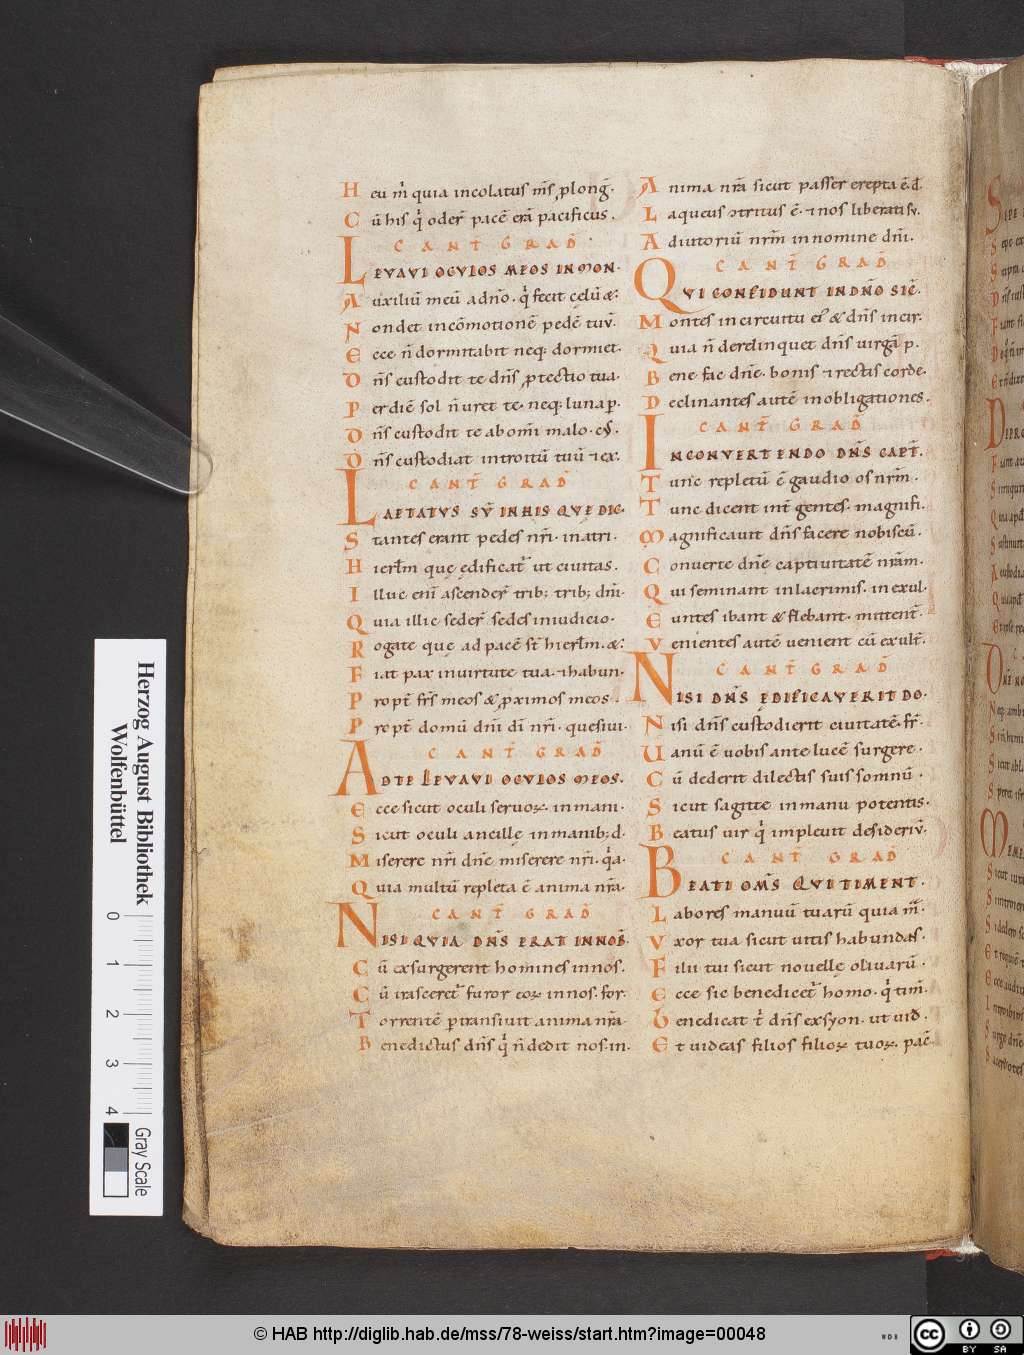 Heu m̄ quia incolatus m̄s ꝓlong̃.
Cū his q̇ oder̃ pacē erā pacificus.
CANT̄ GRAD̄
LEVAVI OCVLOS MEOS IN MON.
Auxiliū meū adn̄o. q̇ fecit cęlū &.
Non det in cōmotionē pedē tuū.
Ecce n̄ dormitabit neq; dormiet.
Dn̄s custodit te dn̄s ꝓtectio tua.
Per diē sol n̄ uret te. neq; luna p.
Dn̄s custodit te ab om̄i malo. c
Dn̄s custodiat introitū tuū ⁊ ex.
CANT̄ GRAD̄
LAETATVS SV̄ IN HIS QVE DIC.
Stantes erant pedes nr̄i. in atri.
Hierl̄m quę ędificat̃ ut ciuitas.
Illuc eni ascender̃ trib; trib; dn̄i.
Quia illic seder̃ sedes in iudicio.
Rogate quę ad pacē st̄ hierl̄m. &.
Fiat pax in uirtute tua. ⁊ habun.
Propt̃ fr̄s meos & ꝓximos meos.
Propt̃ domū dn̄i dī nr̄i. quesiui.
CANT̄ GRAD̄
AD TE LEVAVI OCVLOS MEOS.
Ecce sicut oculi seruoꝝ. in mani.
Sicut oculi ancille in manib; d.
Miserere nr̄i dn̄e miserere nr̄i. q̇a.
Quia multū repleta ē anima nr̄a.
CANT̄ GRAD̄
NISI QVIA DN̄S ERAT IN NOB̄.
Cū exsurgerent homines in nos.
Cū irasceret̃ furor eoꝝ in nos. for.
Torrentē ꝑtransiuit anima nr̄a.
Benedictus dn̄s q̇ n̄ dedit nos. in.
Anima nr̄a sicut passer erepta ē. d.
Laqueus ɔtritus ē. ⁊ nos liberati sṽ.
Adiutoriū nr̄m in nomine dn̄i.
CANT̄ GRAD̄
QVI CONFIDUNT IN DN̄O SIC̄.
Montes in circuitu ei' & dn̄s in cir.
Quia n̄ derelinquet dn̄s uirgā p.
Bene fac dn̄e. bonis ⁊ rectis corde.
Declinantes autē in obligationes.
CANT̄ GRAD̄
IN CONVERTENDO DN̄S CAPT̄.
Tunc repletū ē gaudio os nr̄m.
Tunc dicent int̃ gentes. magnifi.
Magnificauit dn̄s facere nobiscū.
Conuerte dn̄e captiuitatē nr̄am.
Qui seminant in lacrimis. in exul.
Euntes ibant & flebant. mittent̃.
Venientes autē venient cū exult̃.
CANT̄ GRAD̄
NISI DN̄S EDIFICAVERIT DO.
Nisi dn̄s custodierit ciuitatē. fr̃.
Uanū ē uobis ante lucē surgere.
Cū dederit dilectis suis somnū.
Sicut sagitte in manu potentis.
Beatus uir q̇ impleuit desideriū.
CANT̄ GRAD̄
BEATI OM̄S QVI TIMENT.
Labores manuū tuarū quia m̃.
Vxor tua sicut uitis habundãs.
Filii tui sicut nouelle oliuarū.
Ecce sic benedicet̃ homo. q̇ tim̃.
Benedicat t̄ dn̄s ex syon. ut uid̃.
Et uideas filios filioꝝ tuoꝝ. pac̄.
Herzog August Bibliothek
Wolfenbüttel
0 1 2 3 4
Gray Scale
© HAB http://diglib.hab.de/mss/78-weiss/start.htm?image=00048
WDB
cc BY SA